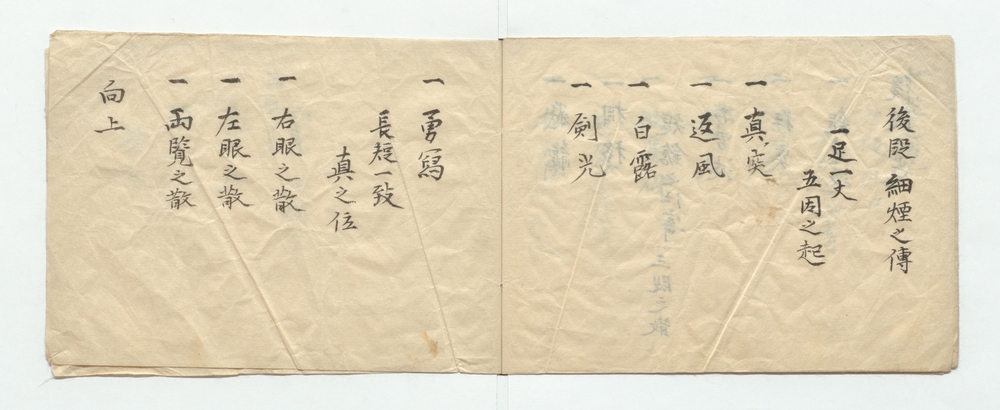 後段 細煙之傳
一足一丈
五因之起
一 真突
一 返風
一 白露
一 剣光
一 勇寫
長短一致
真之位
一 右眼之散
一 左眼之散
一 両覧之散
向上